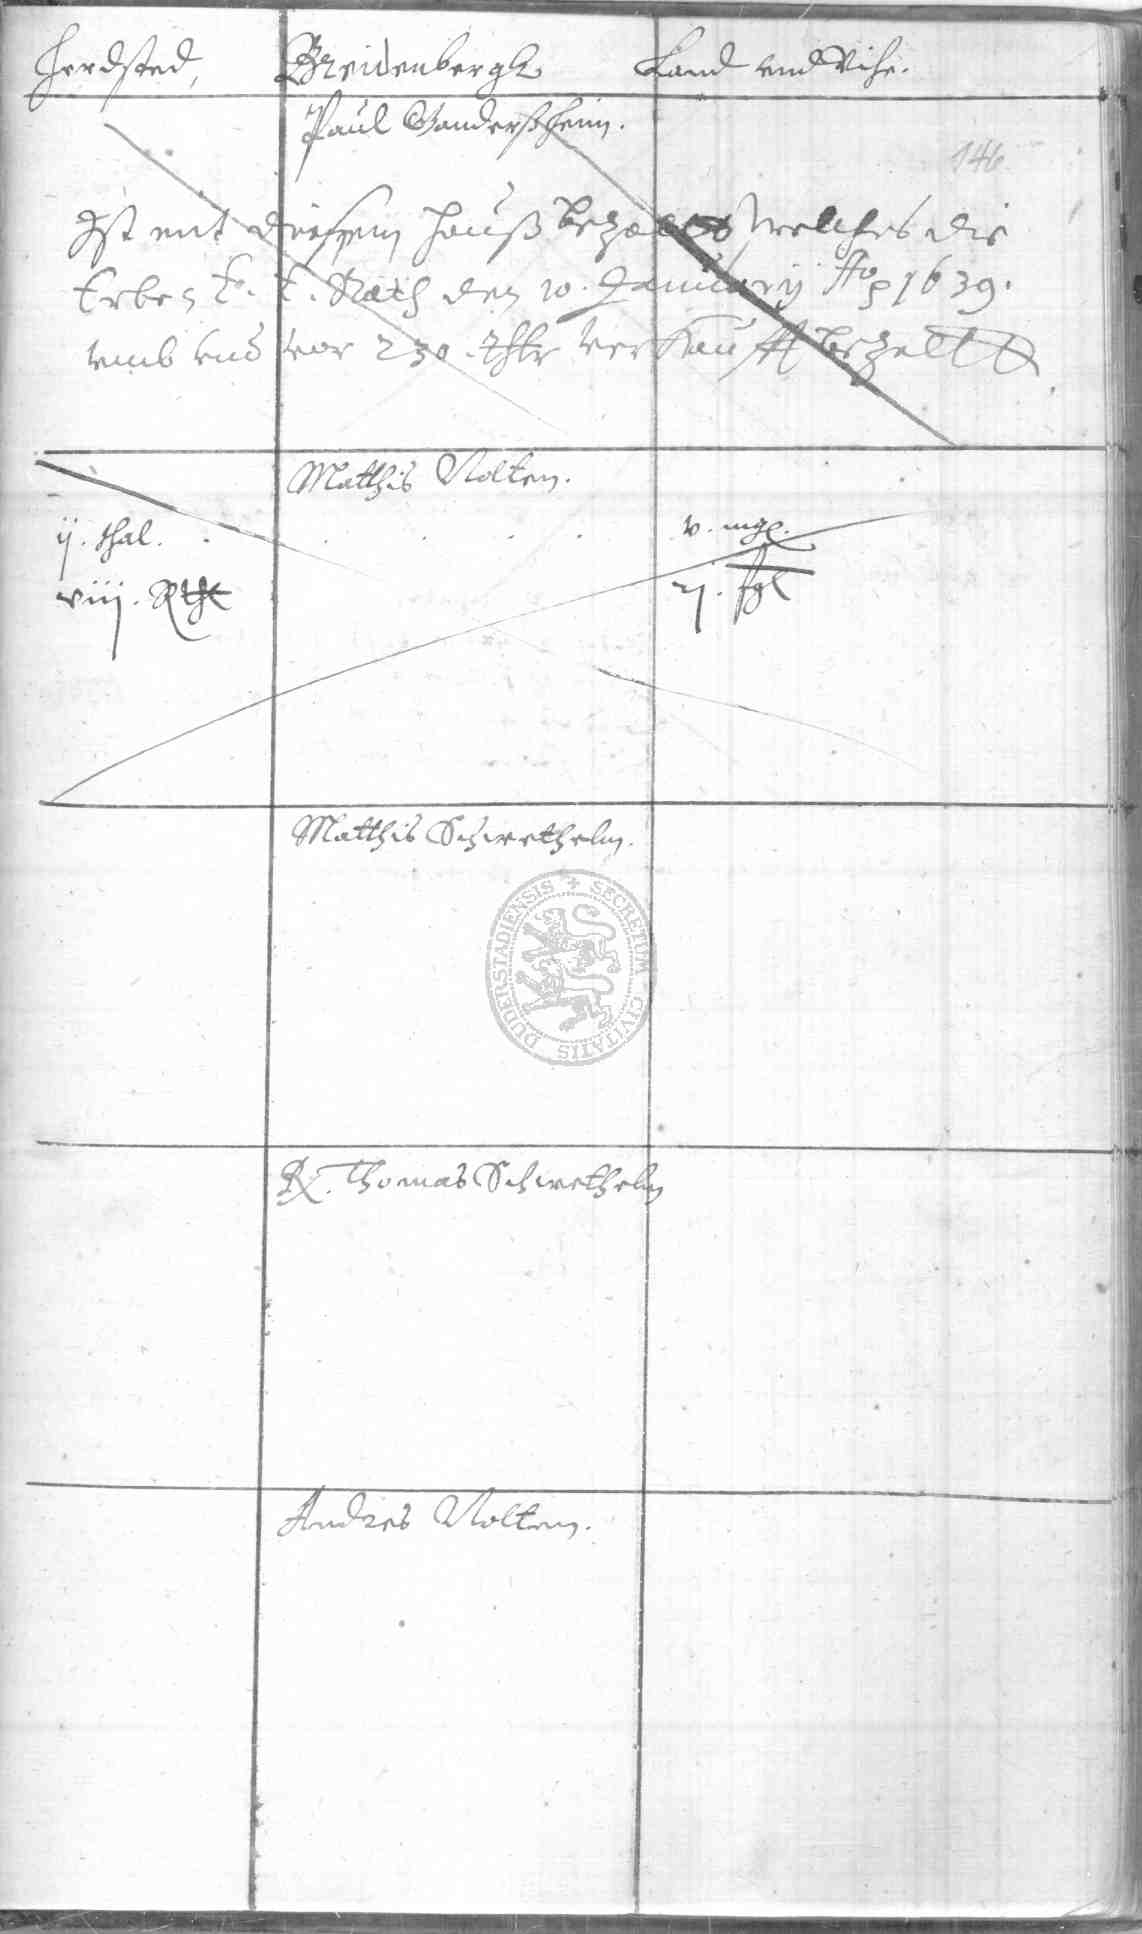 Herdsted, Breidenbergk Land und Vihe.
Paul Ganderßheim.
146
Ist mit diesem Hauß bezalet welches die
Erben E. E. Rath den 10. Januarij Ao p 1639.
umb und vor 230. thlr verkaufft bezaltt
Matthis Nolten.
ij. thal. v. mgr.
viij. Rthl ij. fgl
Matthis Schwethelm.
DUDERSTADIENSIS + SECRETUM CIVITATIS
R. Thomas Schwethelm
Andres Nolten.